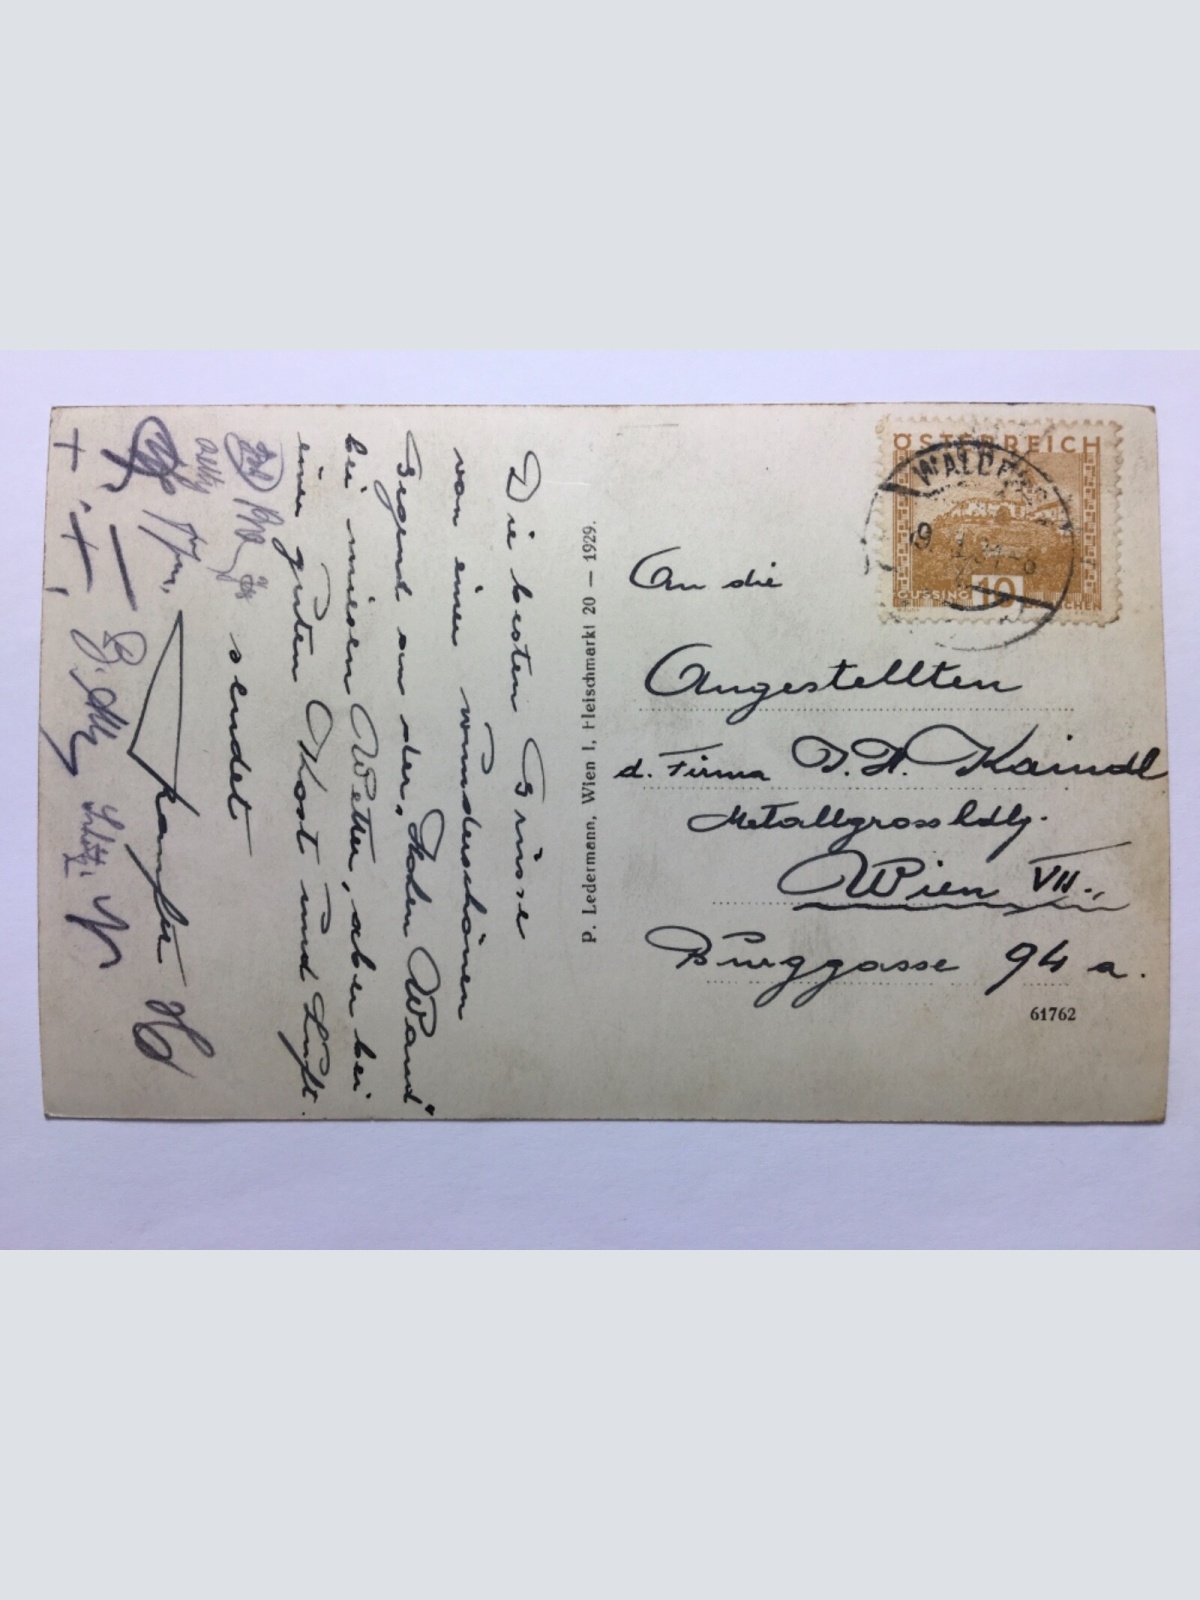 Die besten Grüsse
von einer wunderschönen
Gegend an der „Hohen Wand"
bei miesen Wetter, aber bei
einer guten Kost und Luft.
sendet
P. Ledermann, Wien I, Fleischmarkt 20 — 1929.
ÖSTERREICH
GÜSSING 10 GROSCHEN
An die
Angestellten
d. Firma J. H. Kaindl
Metallgrosshdlg.
Wien VII.,
Burggasse 94 a.
61762